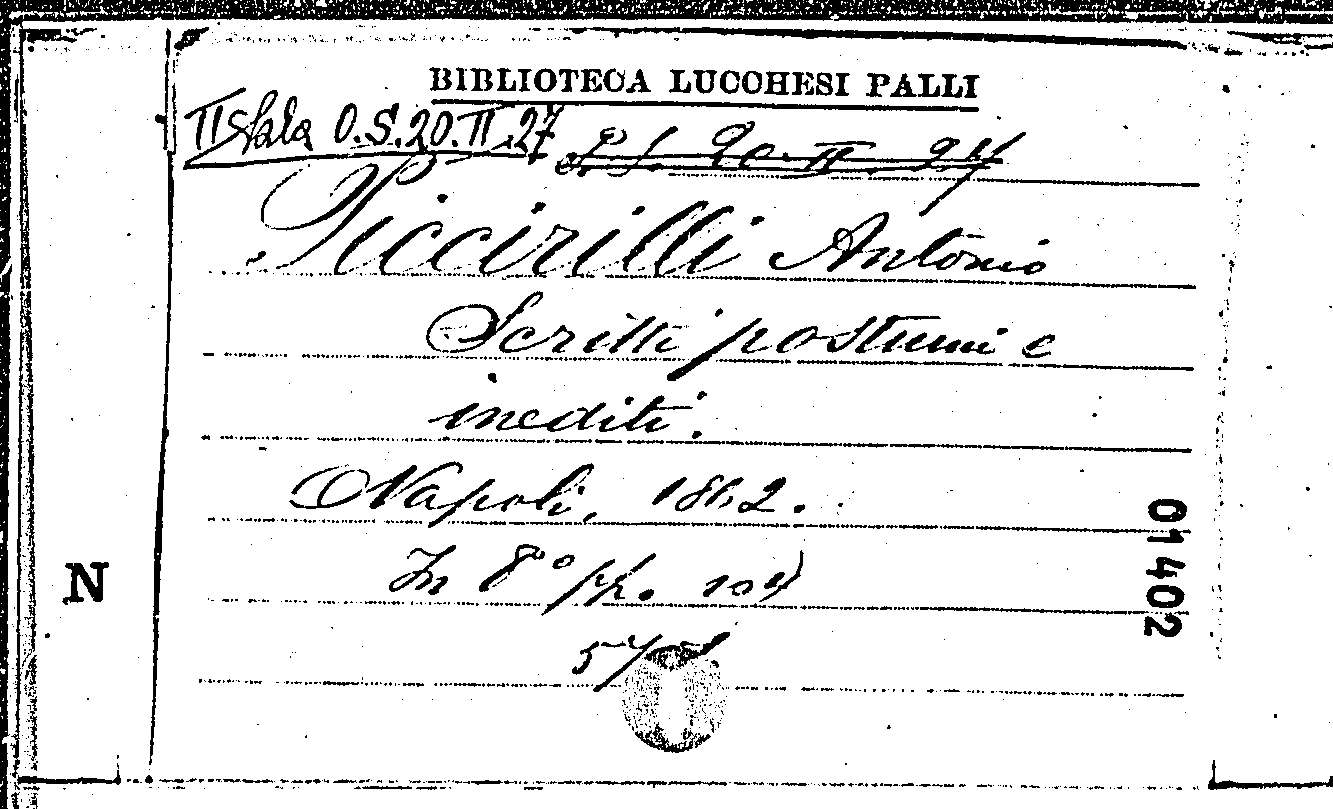 BIBLIOTECA LUCCHESI PALLI
II Sala O.S.20.II.27 P.S. 20.II.27
Piccirilli Antonio
Scritti postumi e
inediti.
Napoli, 1862.
In 8° pp. 104
N
01402